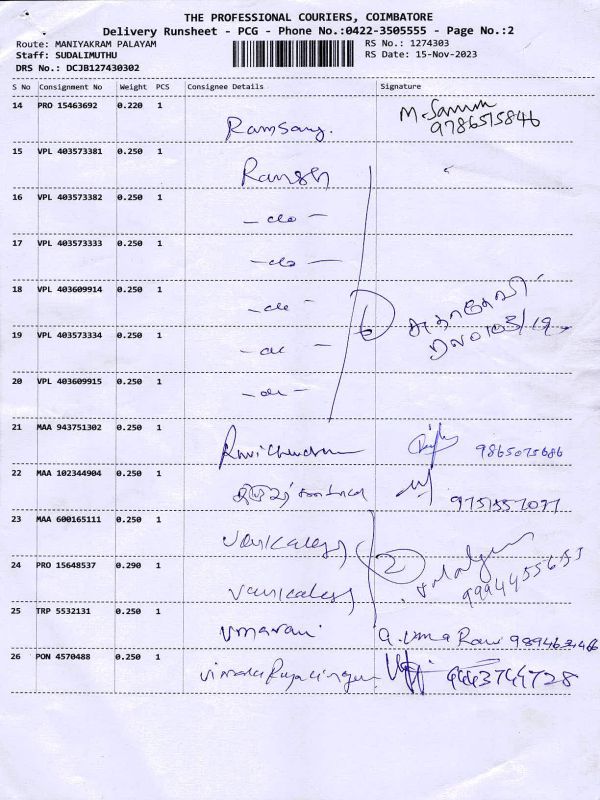 THE PROFESSIONAL COURIERS, COIMBATORE
Delivery Runsheet - PCG - Phone No.:0422-3505555 - Page No.:2
Route: MANIYAKRAM PALAYAM RS No.: 1274303
Staff: SUDALIMUTHU RS Date: 15-Nov-2023
DRS No.: DCJB127430302
S No Consignment No Weight PCS Consignee Details Signature
14 PRO 15463692 0.220 1 Ramsamy.
15 VPL 403573381 0.250 1
16 VPL 403573382 0.250 1 - do -
17 VPL 403573333 0.250 1 - do -
18 VPL 403609914 0.250 1 - do - 6
19 VPL 403573334 0.250 1 - do -
20 VPL 403609915 0.250 1 - do -
21 MAA 943751302 0.250 1 Ravichandran 9865075686
22 MAA 102344904 0.250 1
23 MAA 600165111 0.250 1 2
24 PRO 15648537 0.290 1 9994455653
25 TRP 5532131 0.250 1 Umarani
26 PON 4570488 0.250 1 9443741728